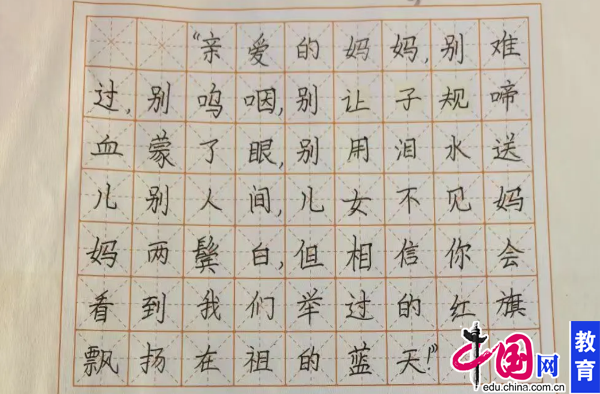 “亲爱的妈妈,别难
过,别呜咽,别让子规啼
血蒙了眼,别用泪水送
儿别人间,儿女不见妈
妈两鬓白,但相信你会
看到我们举过的红旗
飘扬在祖的蓝天!”
中国网
教育
edu.china.com.cn